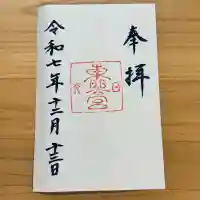 奉拝
東照宮
令和七年十二月十三日